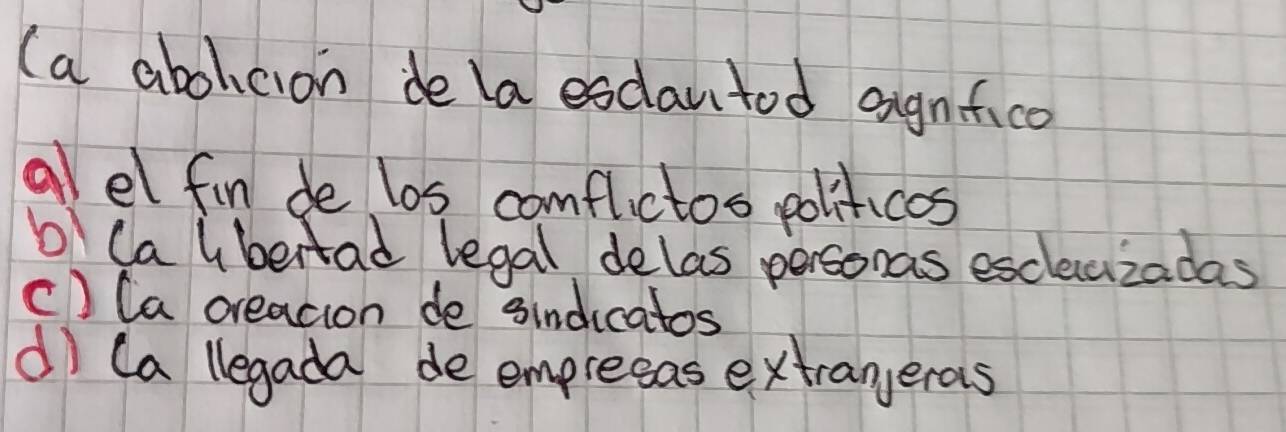 La abolición de la esclavitod significo
a) el fin de los comflictos políticos
b) La libertad legal delas personas esclavizadas
c) La creacion de sindicatos
d) La llegada de empresas extranjeras